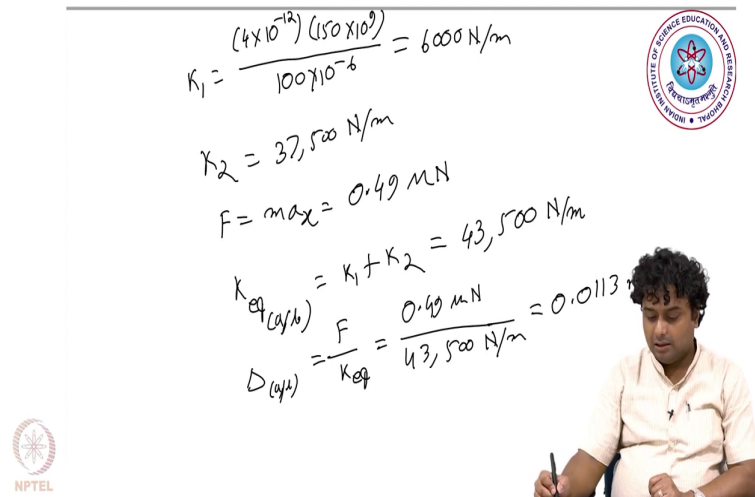 K₁ = (4×10⁻¹²) (150×10⁹) / 100×10⁻⁶ = 6000 N/m
K₂ = 37,500 N/m
F = max = 0.49 μN
Keq(a/b) = K₁ + K₂ = 43,500 N/m
D(a/b) = F / Keq = 0.49 μN / 43,500 N/m = 0.0113
INDIAN INSTITUTE OF SCIENCE EDUCATION AND RESEARCH BHOPAL
विद्ययाऽमृतमश्नुते
NPTEL